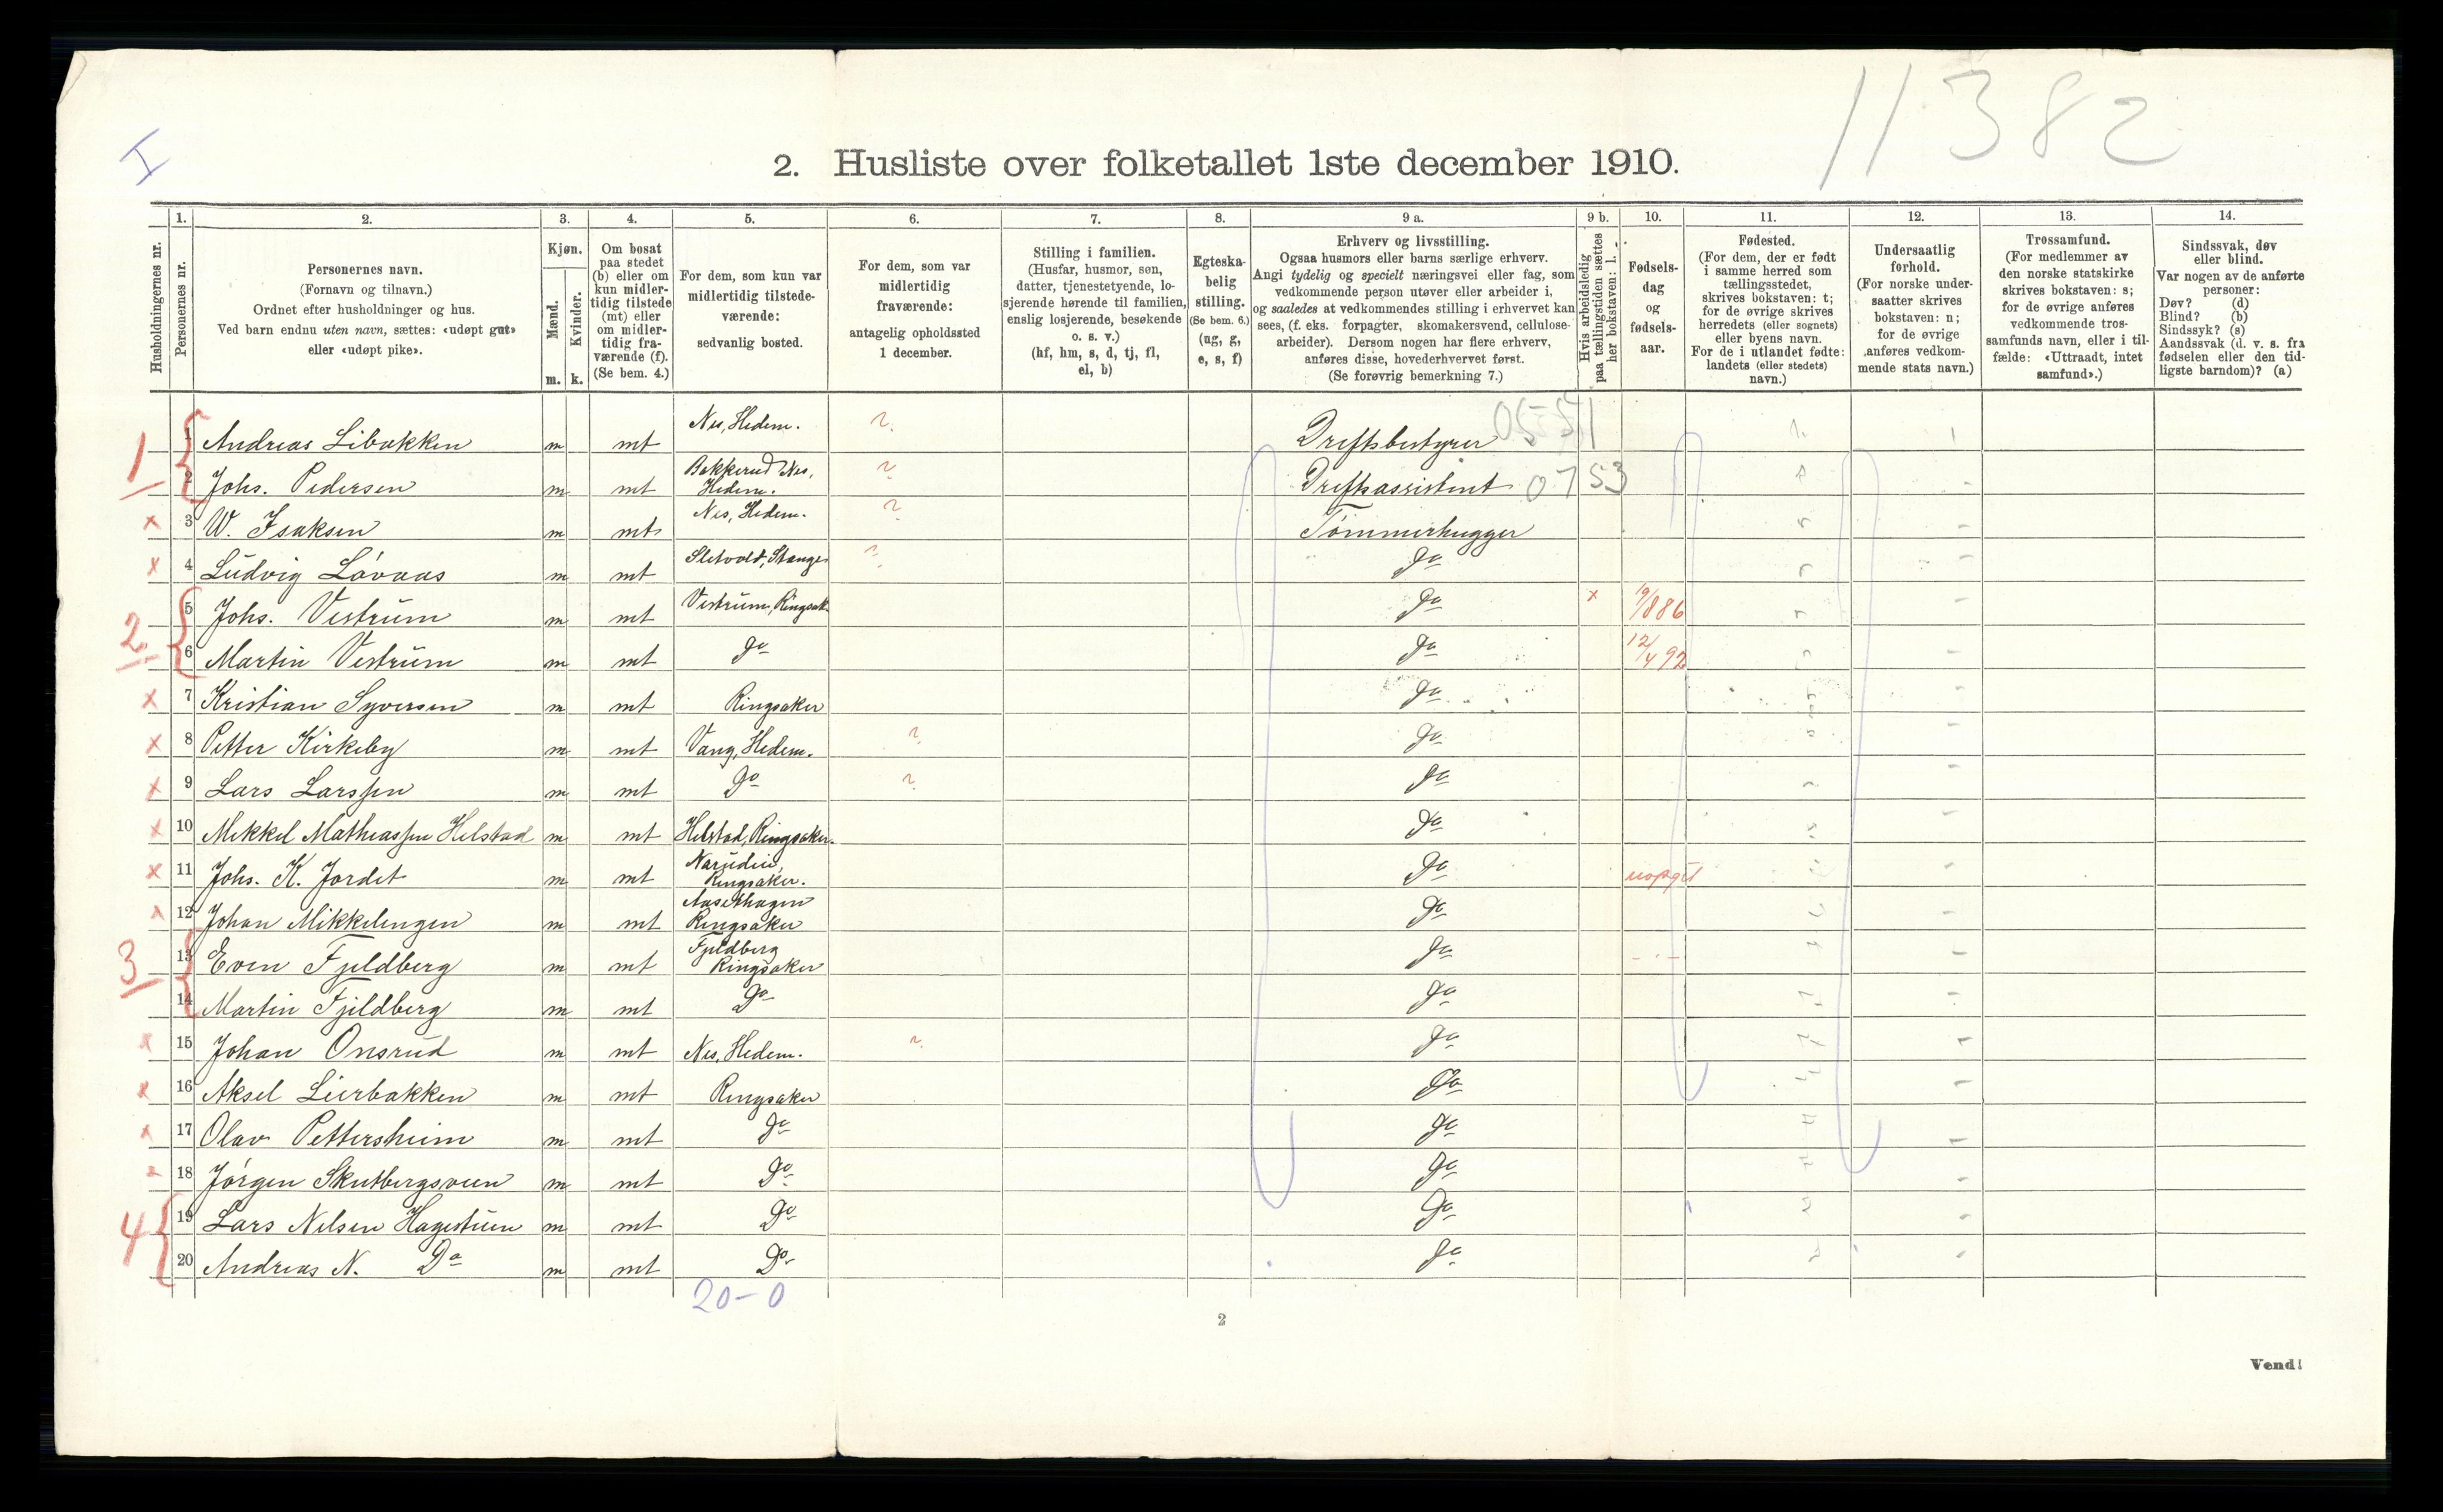 11382
I
2. Husliste over folketallet 1ste december 1910.
Husholdningernes nr.
1.
Personernes nr.
2.
Personernes navn.
(Fornavn og tilnavn.)
Ordnet efter husholdninger og hus.
Ved barn endnu uten navn, sættes: «udøpt gut»
eller «udøpt pike».
3.
Kjøn.
Mænd.
Kvinder.
m. k.
4.
Om bosat
paa stedet
(b) eller om
kun midler-
tidig tilstede
(mt) eller
om midler-
tidig fra-
værende (f).
(Se bem. 4.)
5.
For dem, som kun var
midlertidig tilstede-
værende:
sedvanlig bosted.
6.
For dem, som var
midlertidig
fraværende:
antagelig opholdssted
1 december.
7.
Stilling i familien.
(Husfar, husmor, søn,
datter, tjenestetyende, lo-
sjerende hørende til familien,
enslig losjerende, besøkende
o. s. v.)
(hf, hm, s, d, tj, fl,
el, b)
8.
Egteska-
belig
stilling.
(Se bem. 6.)
(ug, g,
e, s, f)
9 a.
Erhverv og livsstilling.
Ogsaa husmors eller barns særlige erhverv.
Angi tydelig og specielt næringsvei eller fag, som
vedkommende person utøver eller arbeider i,
og saaledes at vedkommendes stilling i erhvervet kan
sees, (f. eks. forpagter, skomakersvend, cellulose-
arbeider). Dersom nogen har flere erhverv,
anføres disse, hovederhvervet først.
(Se forøvrig bemerkning 7.)
9 b.
Hvis arbeidsledig
paa tællingstiden sættes
her bokstaven: l.
10.
Fødsels-
dag
og
fødsels-
aar.
11.
Fødested.
(For dem, der er født
i samme herred som
tællingsstedet,
skrives bokstaven: t;
for de øvrige skrives
herredets (eller sognets)
eller byens navn.
For de i utlandet fødte:
landets (eller stedets)
navn.)
12.
Undersaatlig
forhold.
(For norske under-
saatter skrives
bokstaven: n;
for de øvrige
anføres vedkom-
mende stats navn.)
13.
Trossamfund.
(For medlemmer av
den norske statskirke
skrives bokstaven: s;
for de øvrige anføres
vedkommende tros-
samfunds navn, eller i til-
fælde: «Uttraadt, intet
samfund».)
14.
Sindssvak, døv
eller blind.
Var nogen av de anførte
personer:
Døv? (d)
Blind? (b)
Sindssyk? (s)
Aandssvak (d. v. s. fra
fødselen eller den tid-
ligste barndom)? (a)
1 1 Andreas Libakken m mt Nes, Hedem. ? Driftsbestyrer
2 Johs. Pedersen m mt Bakkerud Nes, Hedem. ? Driftsassistent 0753
x 3 W. Isaksen m mt Nes, Hedem. ? Tømmerhugger
x 4 Ludvig Løvaas m mt Sletvold, Stange ? Do
2 5 Johs. Vestrum m mt Vestrum, Ringsak. Do x 19/8 86
6 Martin Vestrum m mt Do Do 12/4 92
x 7 Kristian Syversen m mt Ringsaker Do
x 8 Petter Kirkeby m mt Vang, Hedem. ? Do
x 9 Lars Larssen m mt Do ? Do
x 10 Mikkel Mathiassen Helstad m mt Helstad, Ringsaker. Do
x 11 Johs. K. Jordet m mt Ringsaker. Do uopgit
x 12 Johan Mikkelengen m mt Ringsaker Do
3 13 Even Fjeldberg m mt Fjeldberg Ringsaker Do - " -
14 Martin Fjeldberg m mt Do Do
x 15 Johan Onsrud m mt Nes, Hedem. ? Do
x 16 Aksel Lierbakken m mt Ringsaker Do
x 17 Olav Pettersheim m mt Do Do
x 18 Jørgen Skutbergsveen m mt Do Do
4 19 Lars Nilsen Hagestuen m mt Do Do
20 Andreas N. Do m mt Do Do
20-0
2
Vend!